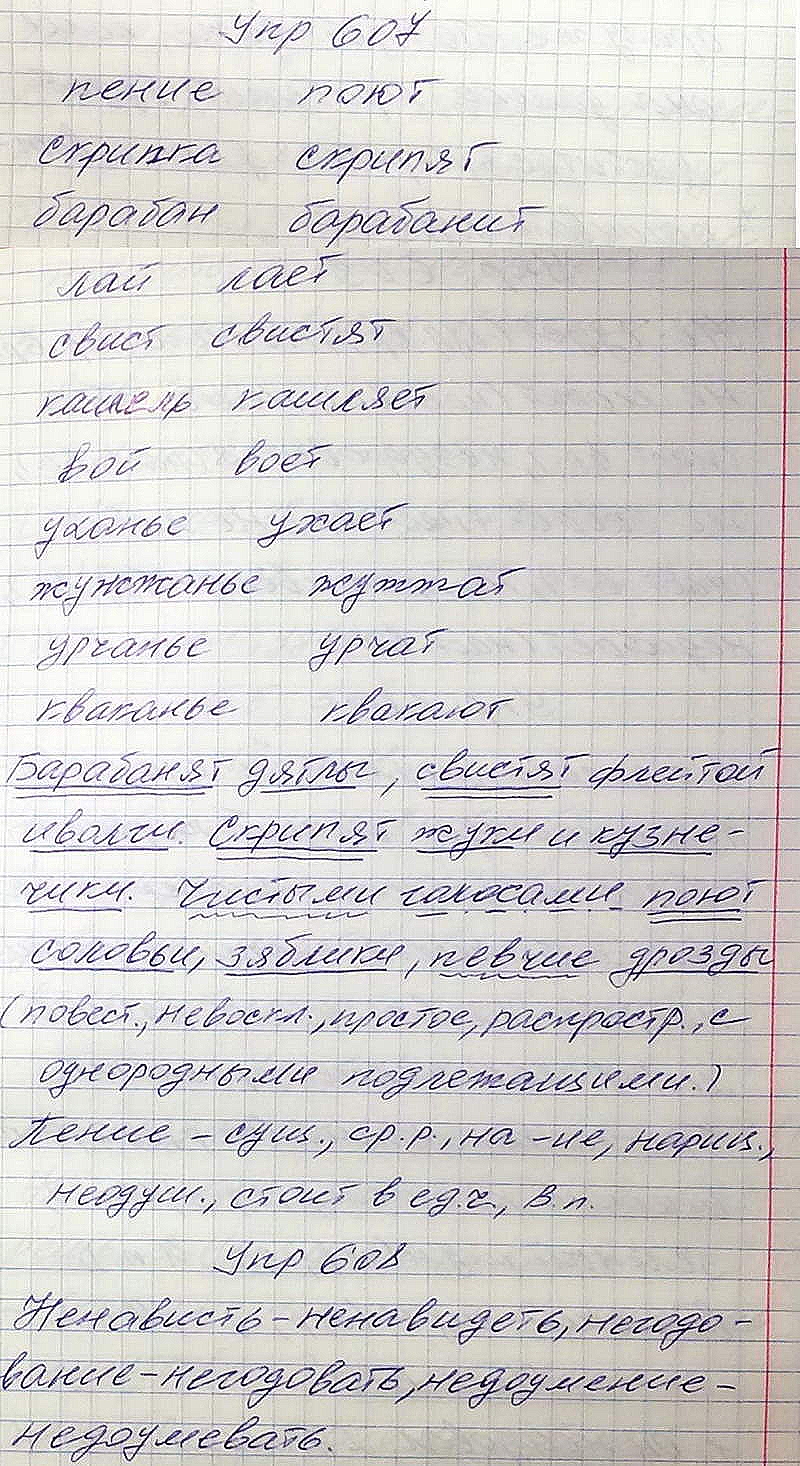 Упр 607
пение поют
скрипка скрипят
барабан барабанит
лай лает
свист свистят
кашель кашляет
вой воет
уханье ухает
жужжанье жужжат
урчанье урчат
кваканье квакают
Барабанят дятлы, свистят флейтой
иволги. Скрипят жуки и кузне-
чики. Чистыми голосами поют
соловьи, зяблики, певчие дрозды
(повест., невоскл., простое, распростр., с
однородными подлежащими.)
Пение – сущ., ср.р., на -ие, нариц.,
неодуш., стоит в ед.ч., В.п.
Упр 608
Ненависть – ненавидеть, негодо-
вание – негодовать, недоумение –
недоумевать.